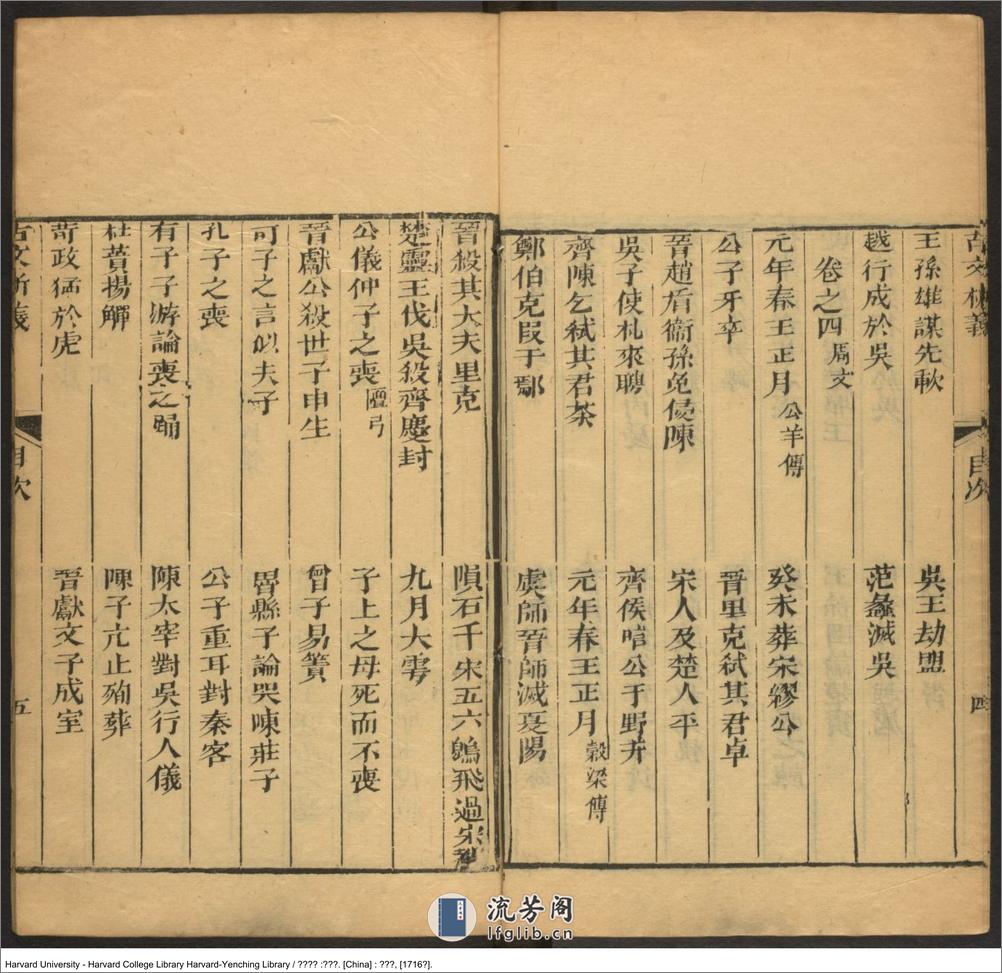 古文析義
目次
四
王孫雄謀先軟 吳王劫盟
越行成於吳 范蠡滅吳
卷之四 周文
元年春王正月 公羊傳 癸未葬宋繆公
公子牙卒 晉里克弒其君卓
晉趙盾衞孫免侵陳 宋人及楚人平
吳子使札來聘 齊侯唁公于野井
齊陳乞弒其君荼 元年春王正月 穀梁傳
鄭伯克叚于鄢 虞師晉師滅夏陽
晉殺其大夫里克 隕石于宋五六鷁飛過宋都
楚靈王伐吳殺齊慶封 九月大雩
公儀仲子之喪 檀弓 子上之母死而不喪
晉獻公殺世子申生 曾子易簀
有子之言似夫子 縣子論哭陳莊子
孔子之喪 公子重耳對秦客
有子子游論喪之踊 陳太宰對吳行人儀
杜蕢揚觶 陳子亢止殉葬
苛政猛於虎 晉獻文子成室
古文析義
目次
五
流芳阁
lfglib.cn
Harvard University - Harvard College Library Harvard-Yenching Library / ???? :???. [China] : ???, [1716?].